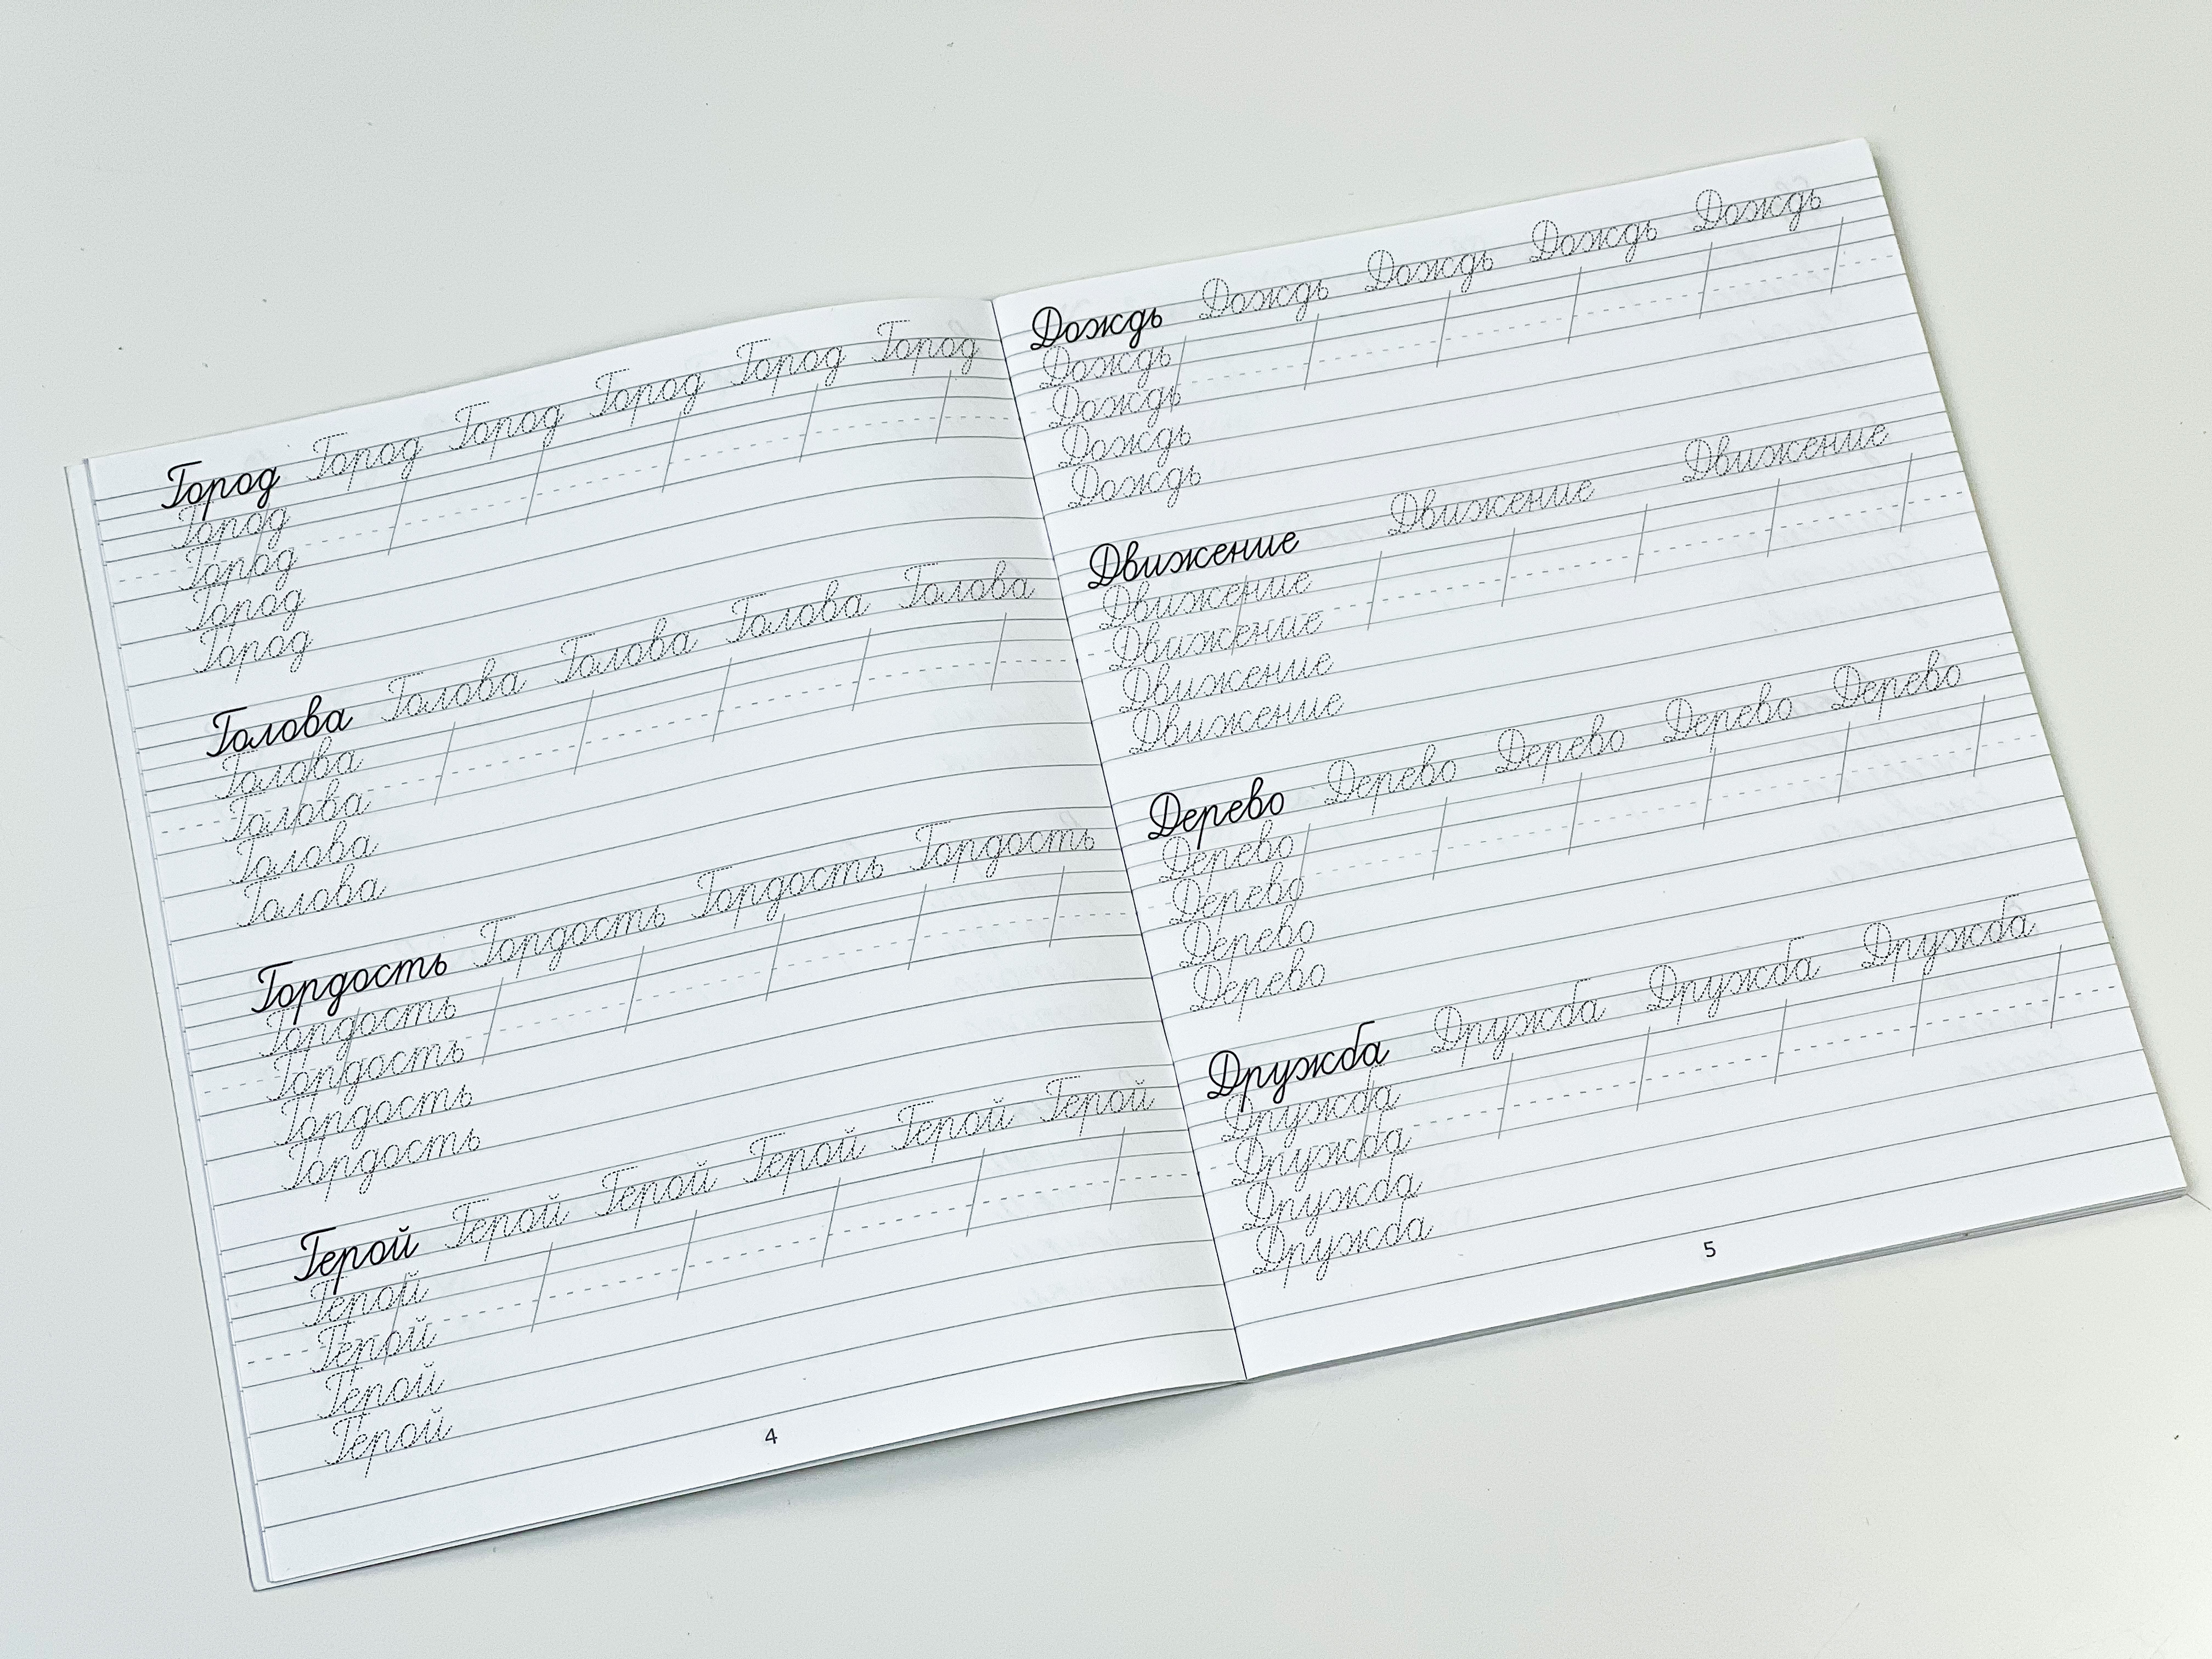 Город Город Город Город Город Город
Город
Город
Город
Город
Голова Голова Голова Голова Голова
Голова
Голова
Голова
Голова
Гордость Гордость Гордость Гордость
Гордость
Гордость
Гордость
Гордость
Герой Герой Герой Герой Герой Герой
Герой
Герой
Герой
Герой
4
Дождь Дождь Дождь Дождь Дождь
Дождь
Дождь
Дождь
Дождь
Движение Движение Движение
Движение
Движение
Движение
Движение
Дерево Дерево Дерево Дерево Дерево
Дерево
Дерево
Дерево
Дерево
Дружба Дружба Дружба Дружба
Дружба
Дружба
Дружба
Дружба
5